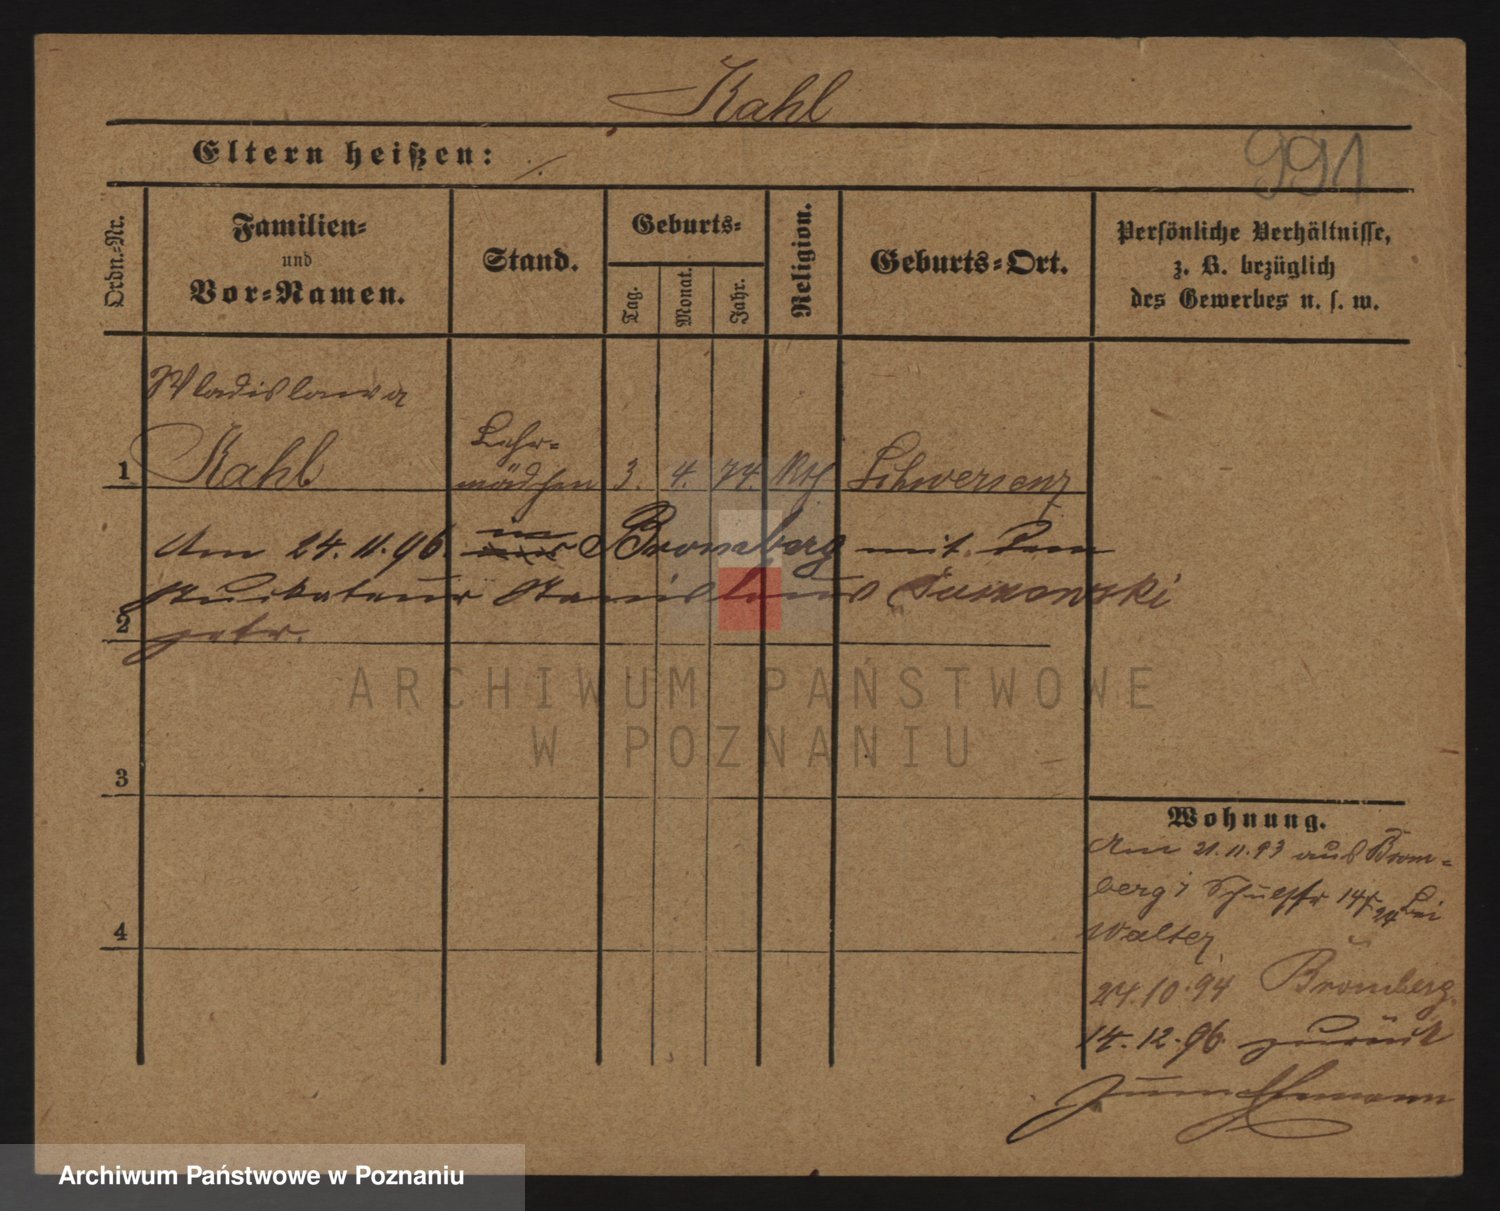 Kahl
Eltern heißen: ./.
991
Ordn.-Nr.
Familien-
und
Vor-Namen.
Stand.
Geburts-
Tag.
Monat.
Jahr.
Religion.
Geburts-Ort.
Persönliche Verhältnisse,
z. B. bezüglich
des Gewerbes u. s. w.
Wladislawa
1 Kahl
Lehr-
mädchen 3. 4. 74. Kth Schwersenz
Am 24. 11. 96 in Bromberg mit dem
Stuckateur Stanislaus
2
3
4
Wohnung.
Am 21.11.93 aus Brom-
berg Schulstr bei
Walter
24.10.94 Bromberg.
14.12.96. zurück
ARCHIWUM PAŃSTWOWE
W POZNANIU
Archiwum Państwowe w Poznaniu